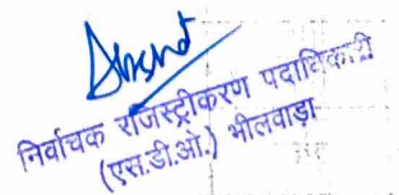 निर्वाचक राजस्ट्रीकरण पदाधिकारी
(एस.डी.ओ.) भीलवाड़ा